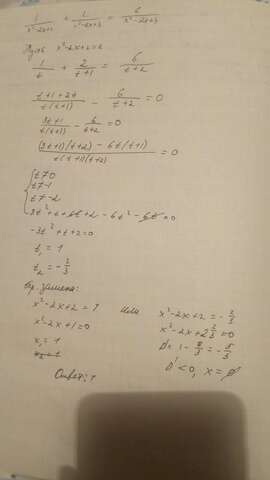 1/(x²-2x+2) + 2/(x²-2x+3) = 6/(x²-2x+4)
Пусть x²-2x+2=t
1/t + 2/(t+1) = 6/(t+2)
(t+1+2t)/(t(t+1)) - 6/(t+2) = 0
(3t+1)/(t(t+1)) - 6/(t+2) = 0
((3t+1)(t+2) - 6t(t+1))/(t(t+1)(t+2)) = 0
t≠0
t≠-1
t≠-2
3t²+t+6t+2-6t²-6t=0
-3t²+t+2=0
t₁=1
t₂=-2/3
Обр. замена:
x²-2x+2=1 или x²-2x+2=-2/3
x²-2x+1=0 x²-2x+2 2/3=0
x₁=1 D=1-8/3=-5/3
D'<0, x=∅
Ответ: 1